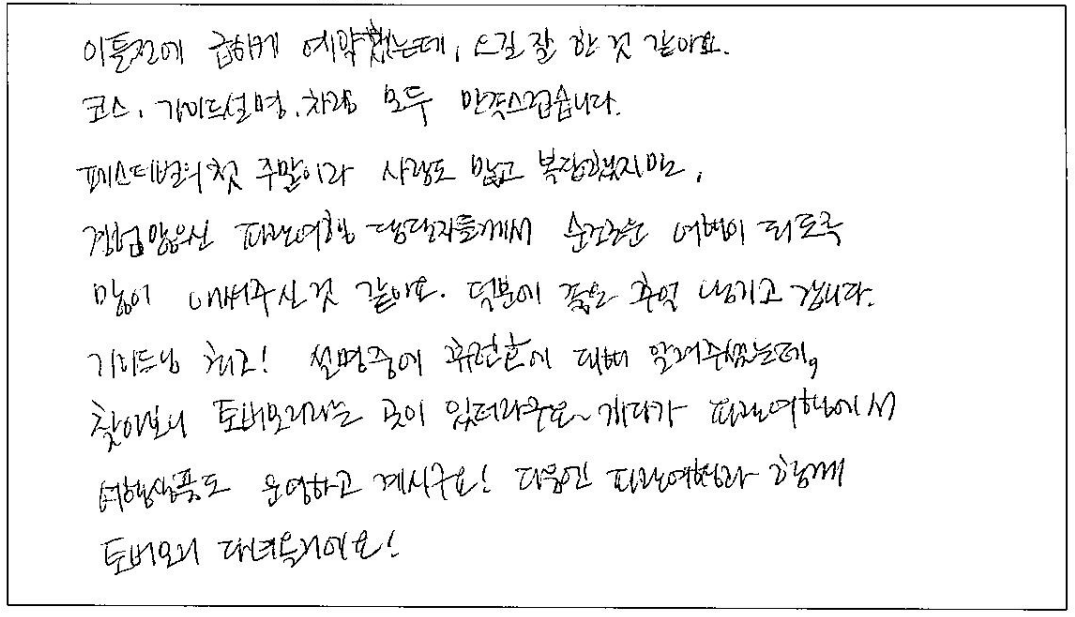 이틀전에 급하게 예약했는데, 오길 잘 한 것 같아요.
코스, 가이드설명, 차량 모두 만족스럽습니다.
페스티벌의 첫 주말이라 사람도 많고 복잡했지만,
경험많으신 파란여행 담당자들께서 순조로운 여행이 되도록
많이 애써주신것 같아요. 덕분에 좋은 추억 남기고 갑니다.
가이드님 최고! 설명중에 대해 알려주셨는데,
찾아보니 토버모리라는 곳이 있더라구요~ 게다가 파란여행에서
여행상품도 운영하고 계시구요! 다음엔 파란여행과 함께
토버모리 다녀올거에요!